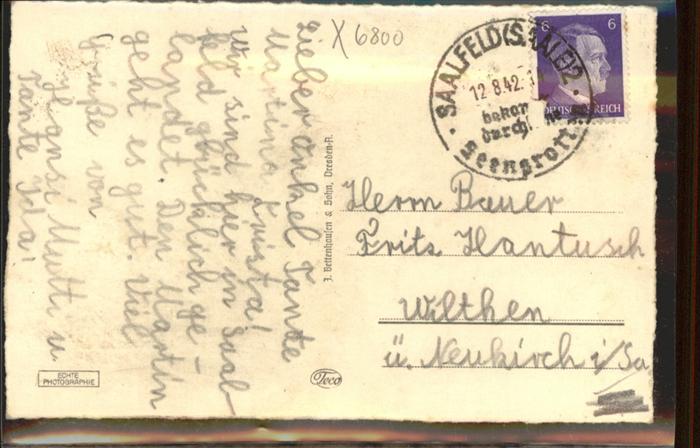 X 6800
Lieber Onkel Tante
Martina, Christa!
Wir sind hier in Saal-
feld glücklich ge-
landet. Den Martin
geht es gut. Viel
Grüße von
Hansi Mutti u.
Tante Ida!
ECHTE
PHOTOGRAPHIE
J. Bettenhausen & Sohn, Dresden-A.
Teco
SAALFELD (SAALE) 2
12.8.42.
bekan
durch
Feengrott
6 6
DEUTSCHES REICH
Herrn Bauer
Fritz Hantusch
Wilthen
ü. Neukirch i/Sa